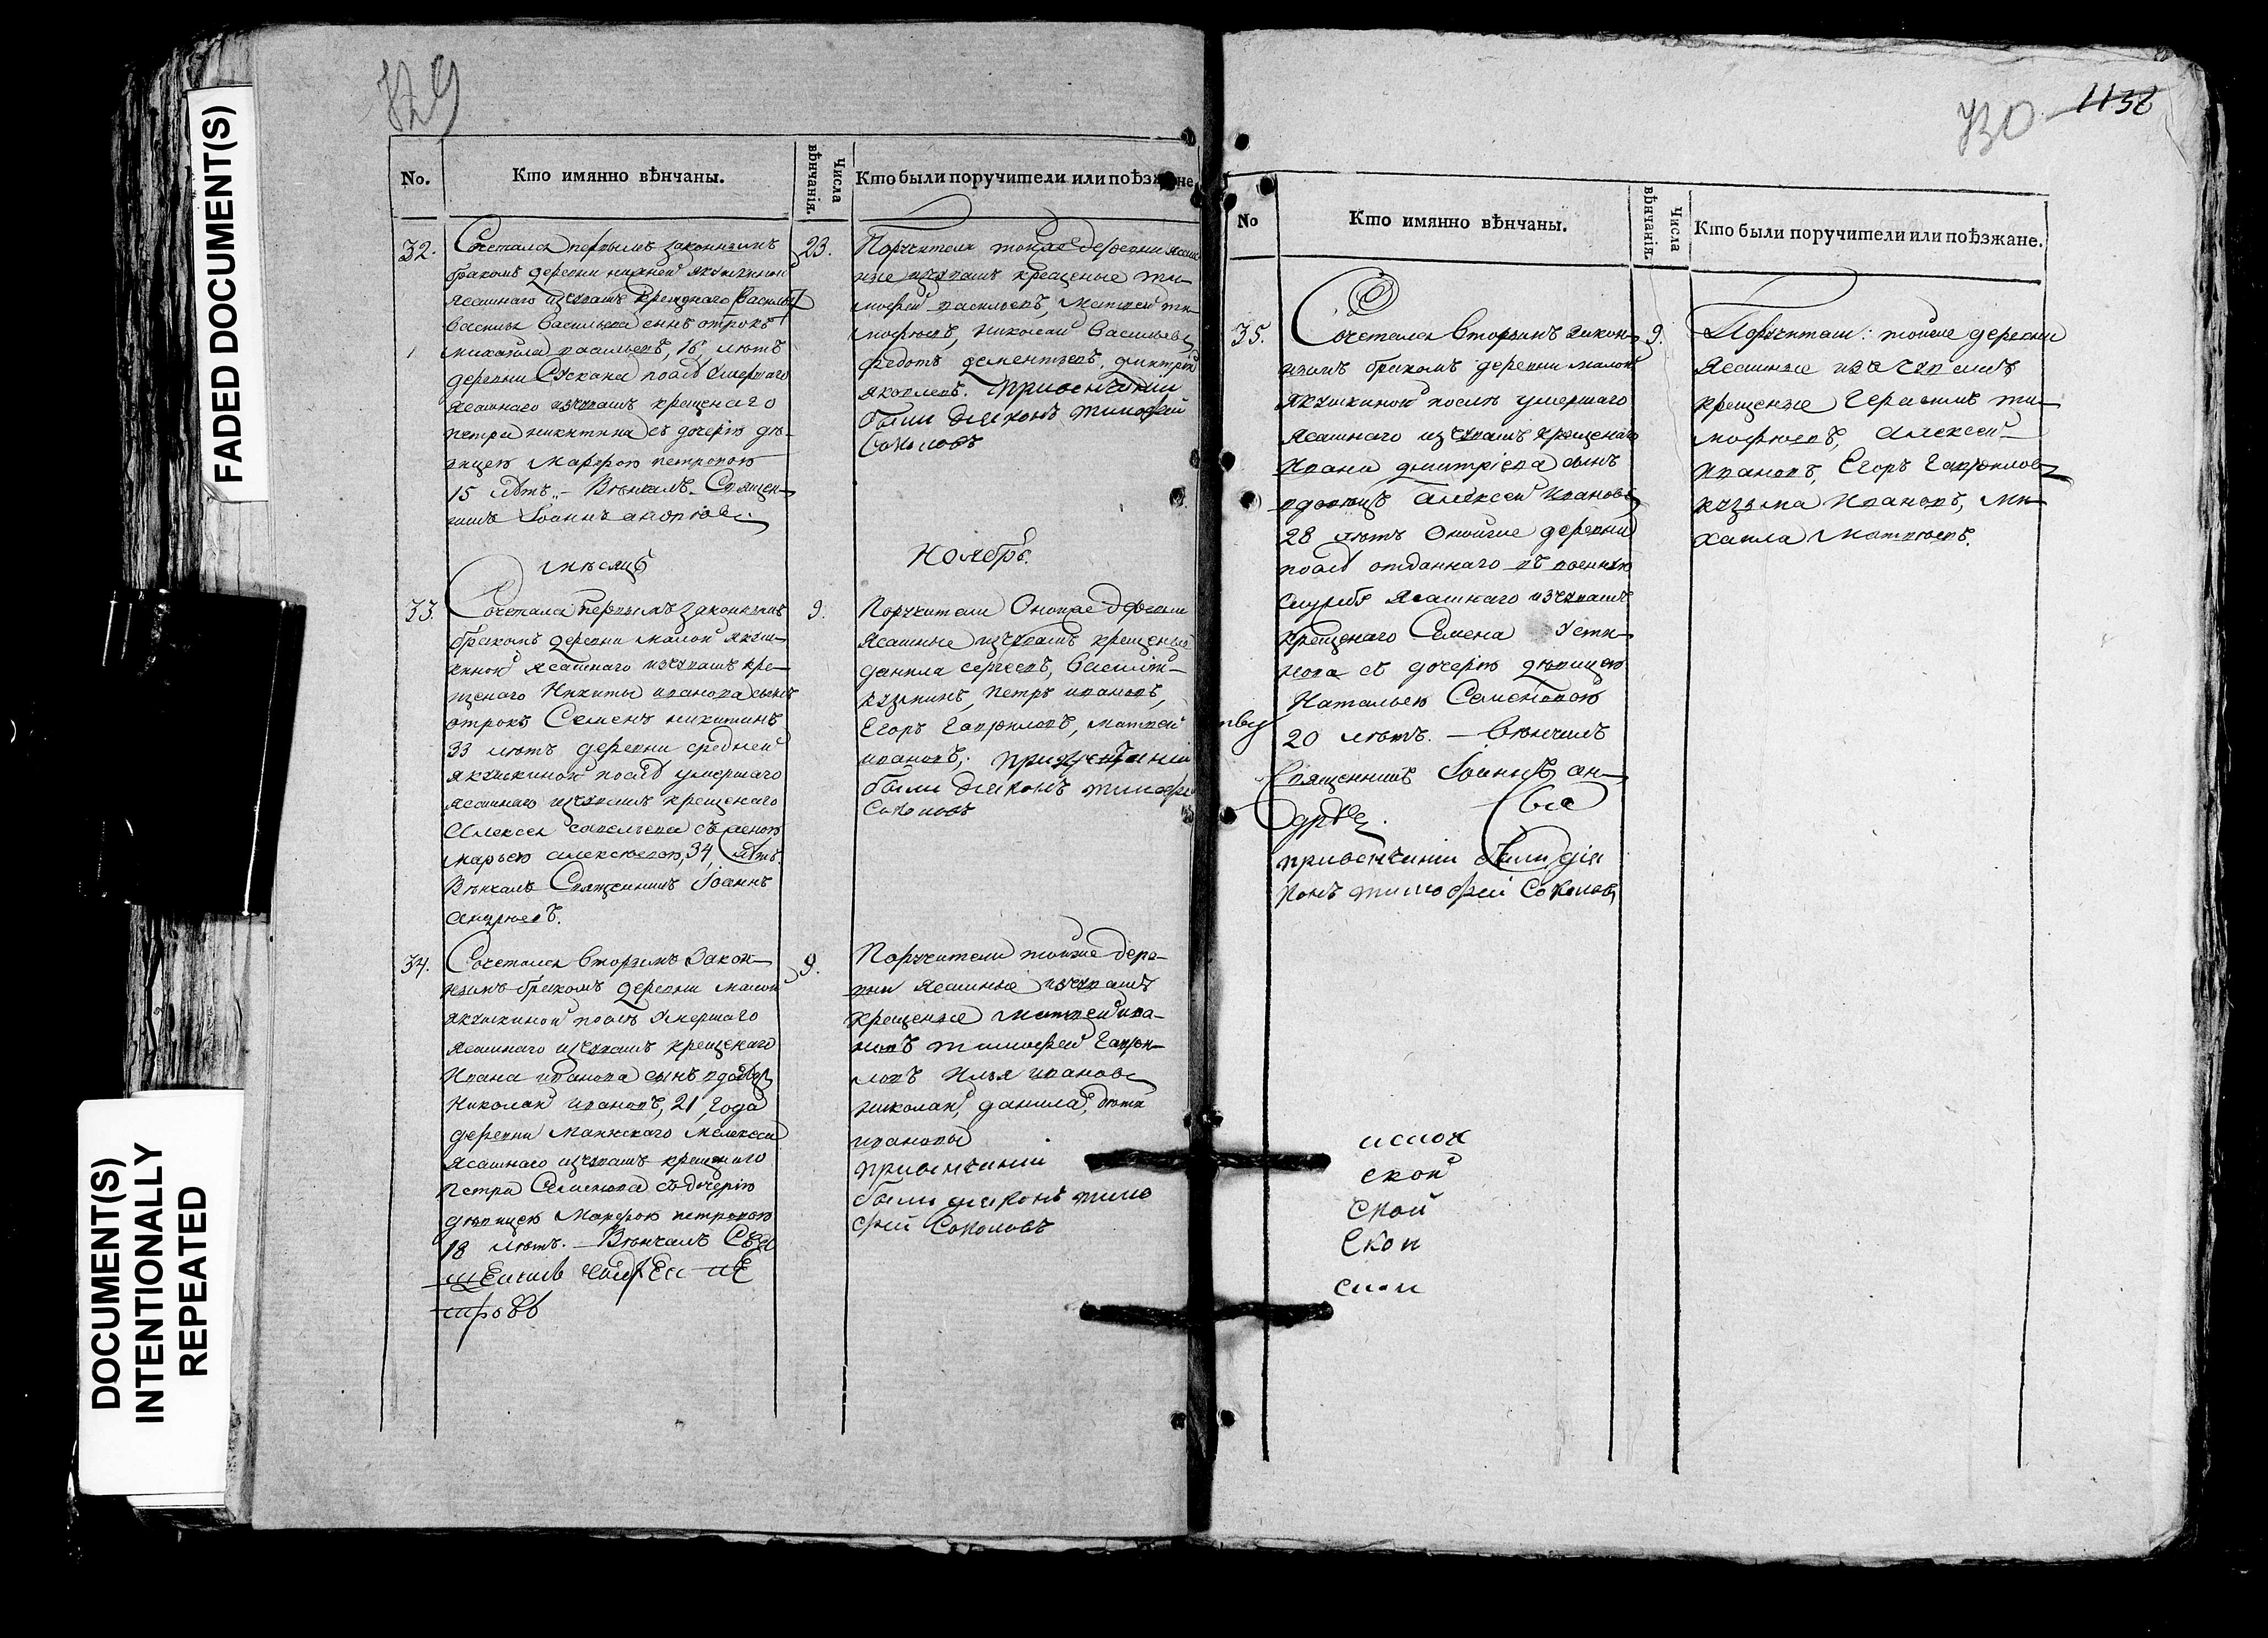 FADED DOCUMENT(S)
DOCUMENT(S)
INTENTIONALLY
REPEATED
729
No.
Кто имянно вѣнчаны.
Числа
вѣнчанія.
Кто были поручители или поѣзжане
32.
Сочетался первымъ законнымъ
бракомъ деревни нижней якушкиной
ясашнаго изчувашъ крещенаго Василья
Васильева сынъ отрокъ
михайла васильевъ, 16, лѣтъ
деревни послѣ умершаго
ясашнаго изчувашъ крещенаго
петра никитина съ дочерію дѣ-
вицею Марфою петровою
15 лѣтъ. – Вѣнчалъ Священ-
никъ Іоаннъ андрѣев.
23.
Поручители тойже деревни ясаш
ные изчувашъ крещеные ти-
мофей васильевъ, матвей ти-
мофеевъ, николай Васильевъ
федотъ дементьевъ, дмитрій
яковлевъ. привенчании
были диаконъ тимофей
Соколовъ
мѣсяцъ
Ноябрь.
33.
Сочетался первымъ законнымъ
бракомъ деревни малой якуш-
киной ясашнаго изчувашъ кре-
щенаго Никиты иванова сынъ
отрокъ Семенъ никитинъ
33 лѣтъ деревни средней
якушкиной послѣ умершаго
ясашнаго изчувашъ крещенаго
Алексея савельева съ женою
марьею алексѣевою, 34, лѣтъ.
Вѣнчалъ Священникъ Іоаннъ
андрѣевъ.
9.
Поручители Оной же деревни
ясашные изчувашъ крещеные
данила сергеевъ, Василій
кузминъ, петръ ивановъ,
Егоръ Гавриловъ, матвей
ивановъ, привенчании
были диаконъ тимофе
Соколовъ
34.
Сочетался вторымъ закон-
нымъ бракомъ деревни малой
якушкиной послѣ умершаго
ясашнаго изчувашъ крещенаго
Ивана иванова сынъ вдовецъ
Николай ивановъ, 21, года
деревни Мелекеса
ясашнаго изчувашъ крещенаго
Петра Семенова съ дочерію
дѣвицею Марфою петровою
18 лѣтъ. – Вѣнчалъ Свя
щенникъ пе
тровъ
9.
Поручители тойже дере-
вни ясашные изчувашъ
крещеные матвей ива-
новъ тимофей Гаври-
ловъ Илья ивановъ
николай, данила, дѣти
ивановы
привенчании
были диаконъ тимо
фей Соколовъ
730 1138
No
Кто имянно вѣнчаны.
Числа
вѣнчанія.
Кто были поручители или поѣзжане.
35.
Сочетался вторымъ закон-
нымъ бракомъ деревни малой
якушкиной послѣ умершаго
ясашнаго изчувашъ крещенаго
Ивана дмитріева сынъ
вдовецъ Алексей Ивановъ
28 лѣтъ Онойже деревни
послѣ отданнаго въ военную
службу ясашнаго изчувашъ
крещенаго Семена Усти-
нова съ дочерію дѣвицею
Натальею Семеновою
20 лѣтъ. – Вѣнчалъ
Священникъ Іоаннъ ан-
дрѣев.
привенчании были діа
конъ тимофей Соколовъ
9.
Поручители: тойже деревни
ясашные изчувашъ
крещеные Герасимъ ти-
мофеевъ, Алексей
ивановъ, Егоръ Гавриловъ
кузьма Ивановъ, Ми-
хаила Матвеевъ.
ской
Ской
Скои